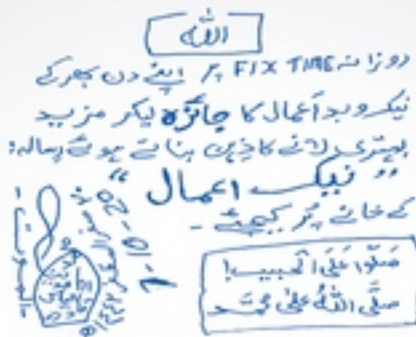 اللہ
روزانہ FIX TIME پر اپنے دن بھر کے
نیک و بد اعمال کا جائزہ لیکر مزید
بہتری لانے کا ذہن بناتے ہوئے رسالہ:
"نیک اعمال"
کے خانے پُر کیجئے۔
صَلُّوا عَلَى الْحَبِیب!
صلَّی اللہُ علیٰ محمَّد